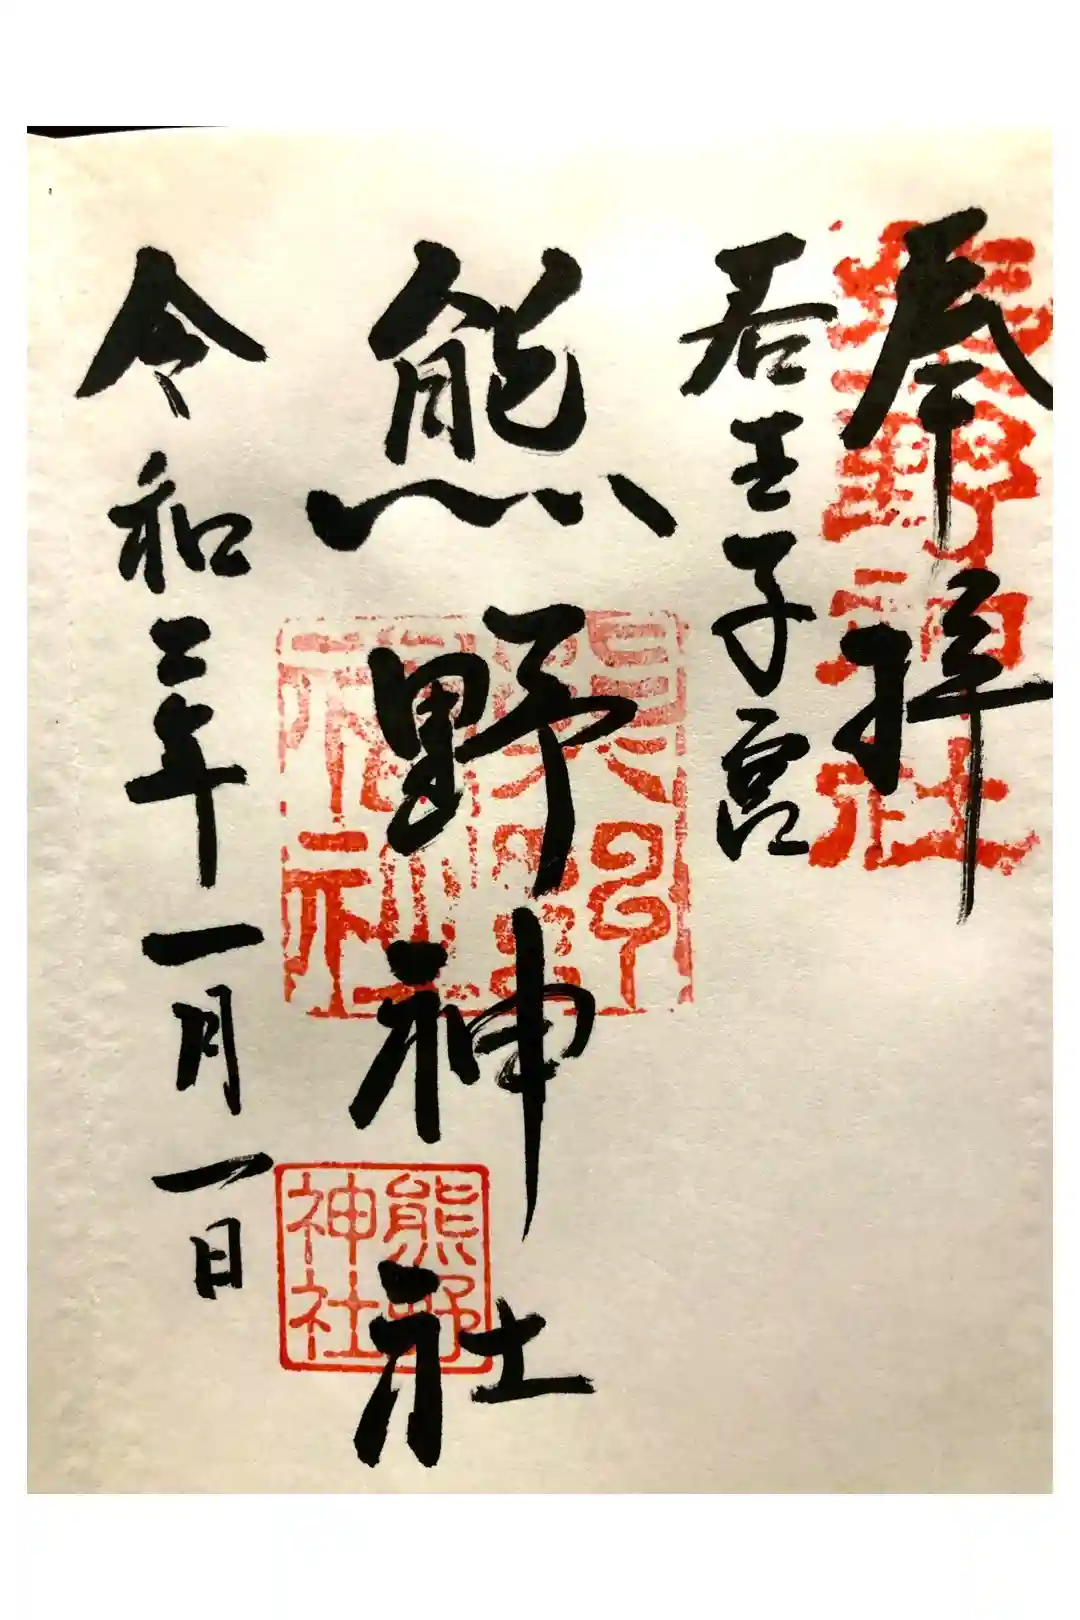 奉拝
熊野神社
若王子宮
熊野神社
熊野
神社
令和三年一月一日